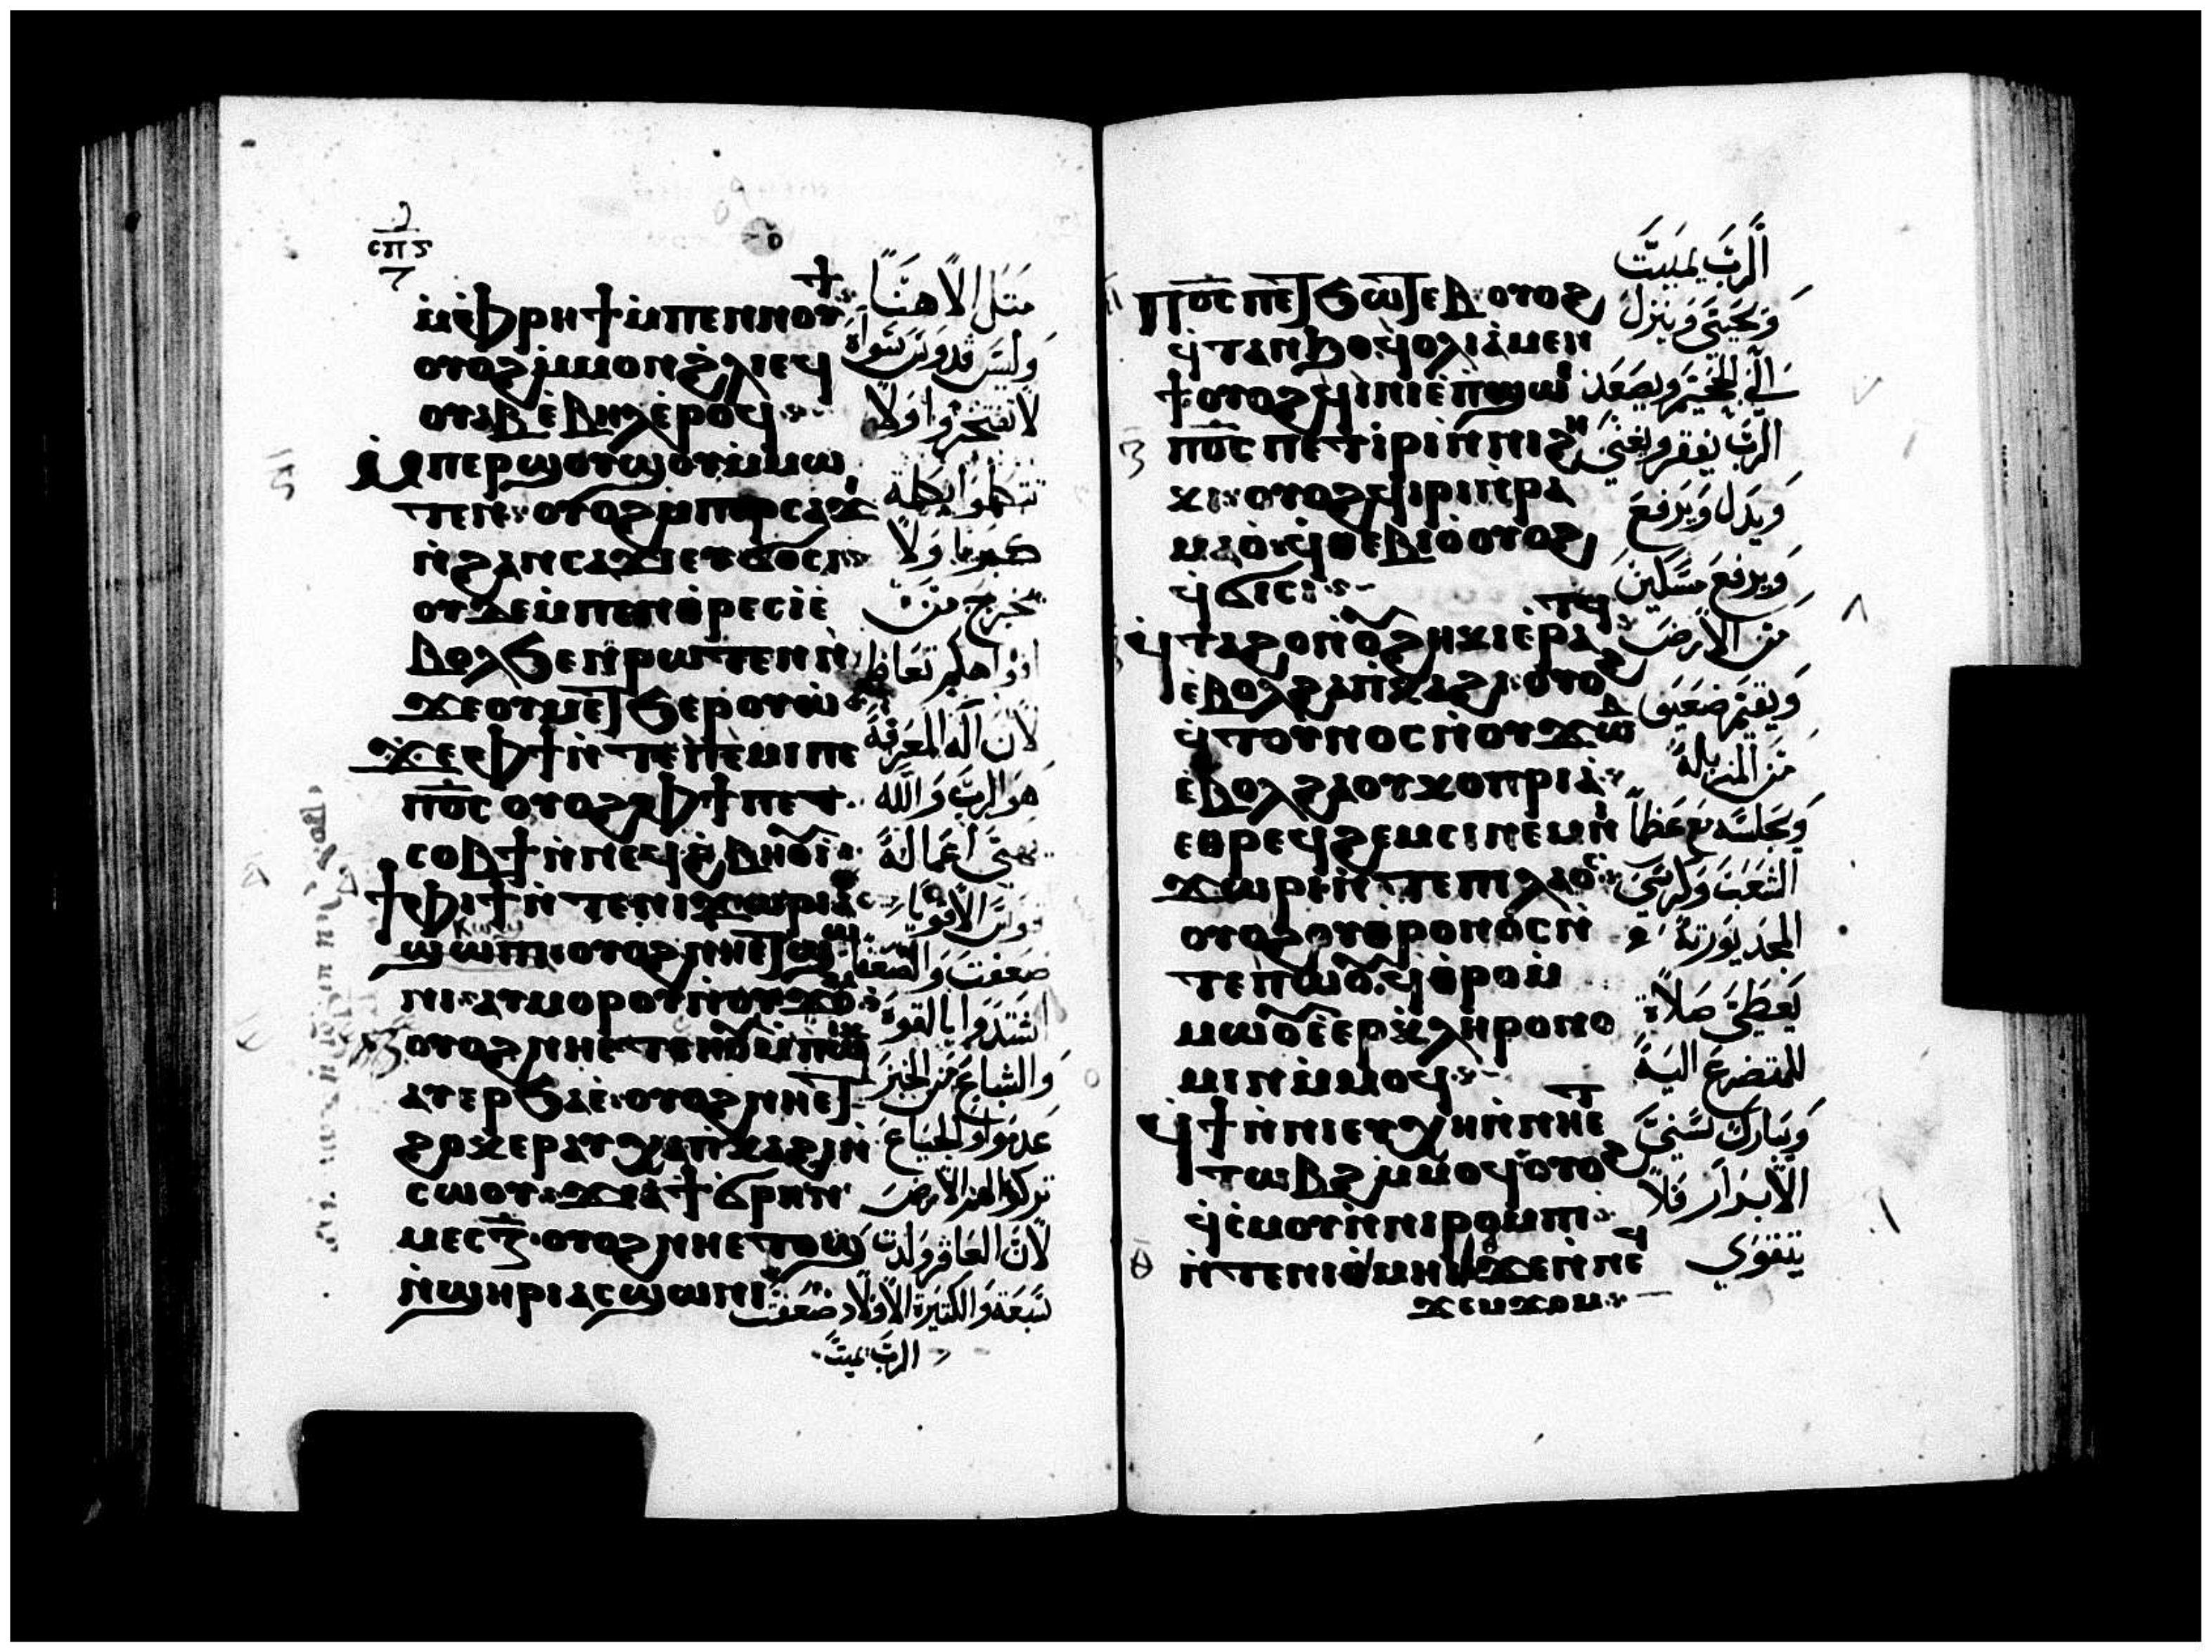 ⲥⲡⲋ
ⲙ̀ⲫⲣⲏϯ ⲙ̀ⲡⲉⲛⲛⲟⲩϯ
ⲟⲩⲟϩ ⲙ̀ⲙⲟⲛ ϩ̀ⲗⲓ ⲉϥ
ⲟⲩⲁⲃ ⲉ̀ⲃⲏⲗ ⲉ̀ⲣⲟϥ
ⲙ̀ⲡⲉⲣϣⲟⲩϣⲟⲩ ⲙ̀ⲙⲱ
ⲧⲉⲛ ⲟⲩⲟϩ ⲙ̀ⲡⲉⲣⲥⲁϫⲓ
ⲛ̀ϩⲁⲛⲥⲁϫⲓ ⲉⲩϭⲟⲥⲓ
ⲟⲩⲇⲉ ⲙ̀ⲡⲉⲛⲑⲣⲉⲥⲓ ⲉ̀
ⲃⲟⲗ ϧⲉⲛ ⲣⲱⲧⲉⲛ ⲛ̀
ϫⲉ ⲟⲩⲙⲉⲧϧⲉⲣⲟⲩⲱ
ϫⲉ ⲫϯ ⲛ̀ⲧⲉ ⲡⲉ̀ⲙⲓ ⲡⲉ
ⲡⲟ̅ⲥ̅ ⲟⲩⲟϩ ⲫϯ ⲡⲉⲧ
ⲥⲟⲃϯ ⲛ̀ⲛⲉϥϩ̀ⲃⲏⲟⲩⲓ̀
ϯⲫⲓϯ ⲛ̀ⲧⲉ ⲛⲓϫⲱⲣⲓ ⲁⲥ
ϣⲱⲛⲓ ⲟⲩⲟϩ ⲛⲏⲉⲧϣⲱ
ⲛⲓ ⲁⲩⲙⲟⲣⲟⲩ ⲛ̀ⲟⲩϫⲟⲙ
ⲟⲩⲟϩ ⲛⲏⲉⲧⲥⲏⲟⲩ ⲙ̀ⲡⲱⲓⲕ
ⲁⲩⲉⲣϧⲁⲉ̀ ⲟⲩⲟϩ ⲛⲏⲉⲧ
ϩⲟⲕⲉⲣ ⲁⲩⲭⲁ ⲡ̀ⲕⲁϩⲓ ⲛ̀
ⲥⲱⲟⲩ ϫⲉ ⲁ ϯϭⲣⲏⲛ
ⲙⲉⲥ ⲍ̅ ⲟⲩⲟϩ ⲛⲏⲉⲧⲟϣ
ⲛ̀ϣⲏⲣⲓ ⲁⲥϣⲱⲛⲓ
مثل الاهنا
وليس قدوس سواه
لا تفتخروا ولا
تتكلموا بكلمة
كبريا ولا
يخرج من
افواهكم تعاظم
لان اله المعرفة
هو الرب والله
يهيى اعماله
قوس الاقويا
ضعفت والضعفا
اشتدوا بالقوة
والشباع من الخبز
عدموا والجياع
تركوا الارض
لان العاقر ولدت
سبعة والكثيرة الاولاد ضعفت
الرب يميت
ⲡⲟ̅ⲥ̅ ⲡⲉⲧϧⲱⲧⲉⲃ ⲟⲩⲟϩ
ϥ̀ⲧⲁⲛϧⲟ ϥ̀ⲟⲗⲓ ⲁ̀ⲙⲉⲛ
ϯ ⲟⲩⲟϩ ϥ̀ⲓⲛⲓ ⲉ̀ⲡϣⲱⲓ
ⲡⲟ̅ⲥ̅ ⲡⲉⲧⲓ̀ⲣⲓ ⲛ̀ⲛⲓϩⲏ
ⲕⲓ ⲟⲩⲟϩ ϥ̀ⲓⲣⲓ ⲛ̀ⲣⲁ
ⲙⲁⲟ̀ ϥ̀ⲑⲉⲃⲓⲟ̀ ⲟⲩⲟϩ
ϥ̀ϭⲓⲥⲓ
ϥ̀ⲧⲁϩⲟ ⲛ̀ⲟⲩϩⲏⲕⲓ ⲉ̀ⲣⲁⲧϥ
ⲉ̀ⲃⲟⲗ ϩⲁ ⲡ̀ⲕⲁϩⲓ ⲟⲩⲟϩ
ϥ̀ⲧⲟⲩⲛⲟⲥ ⲛ̀ⲟⲩϫⲱⲃ
ⲉ̀ⲃⲟⲗ ϩⲁ ⲟⲩⲕⲟⲡⲣⲓⲁ̀
ⲉⲑⲣⲉϥϩⲉⲙⲥⲓ ⲛⲉⲙ ⲛⲓ
ϫⲱⲣⲓ ⲛ̀ⲧⲉ ⲡⲓⲗⲁⲟⲥ
ⲟⲩⲟϩ ⲟⲩⲑⲣⲟⲛⲟⲥ ⲛ̀
ⲧⲉ ⲡⲱⲟⲩ ϥ̀ⲑⲣⲟⲩ
ⲙⲱⲟⲩ ⲉ̀ⲉⲣⲕⲗⲏⲣⲟⲛⲟ
ⲙⲓⲛ ⲙ̀ⲙⲟϥ
ϥ̀ϯ ⲛ̀ⲛⲓⲉⲩⲭⲏ ⲛ̀ⲛⲏⲉⲧ
ⲧⲱⲃϩ ⲙ̀ⲙⲟϥ ⲟⲩⲟϩ
ϥ̀ⲥ̀ⲙⲟⲩ ⲛ̀ⲛⲓⲣⲟⲙⲡⲓ
ⲛ̀ⲧⲉ ⲛⲓⲑ̀ⲙⲏⲓ ϫⲉ ⲛ̀ⲛⲉϥ
ϫⲉⲙϫⲟⲙ
الرب يميت
ويحيى وينزل
الى الجحيم ويصعد
الرب يفقر ويغنى
ويذل ويرفع
ويرفع مسكين
من الارض
ويقيم ضعيف
من المزبلة
ويجلسه مع عظما
الشعب وكرسى
المجد يورثه
يعطى صلاة
للمتضرع اليه
ويبارك سنى
الابرار فلا
يتقوي